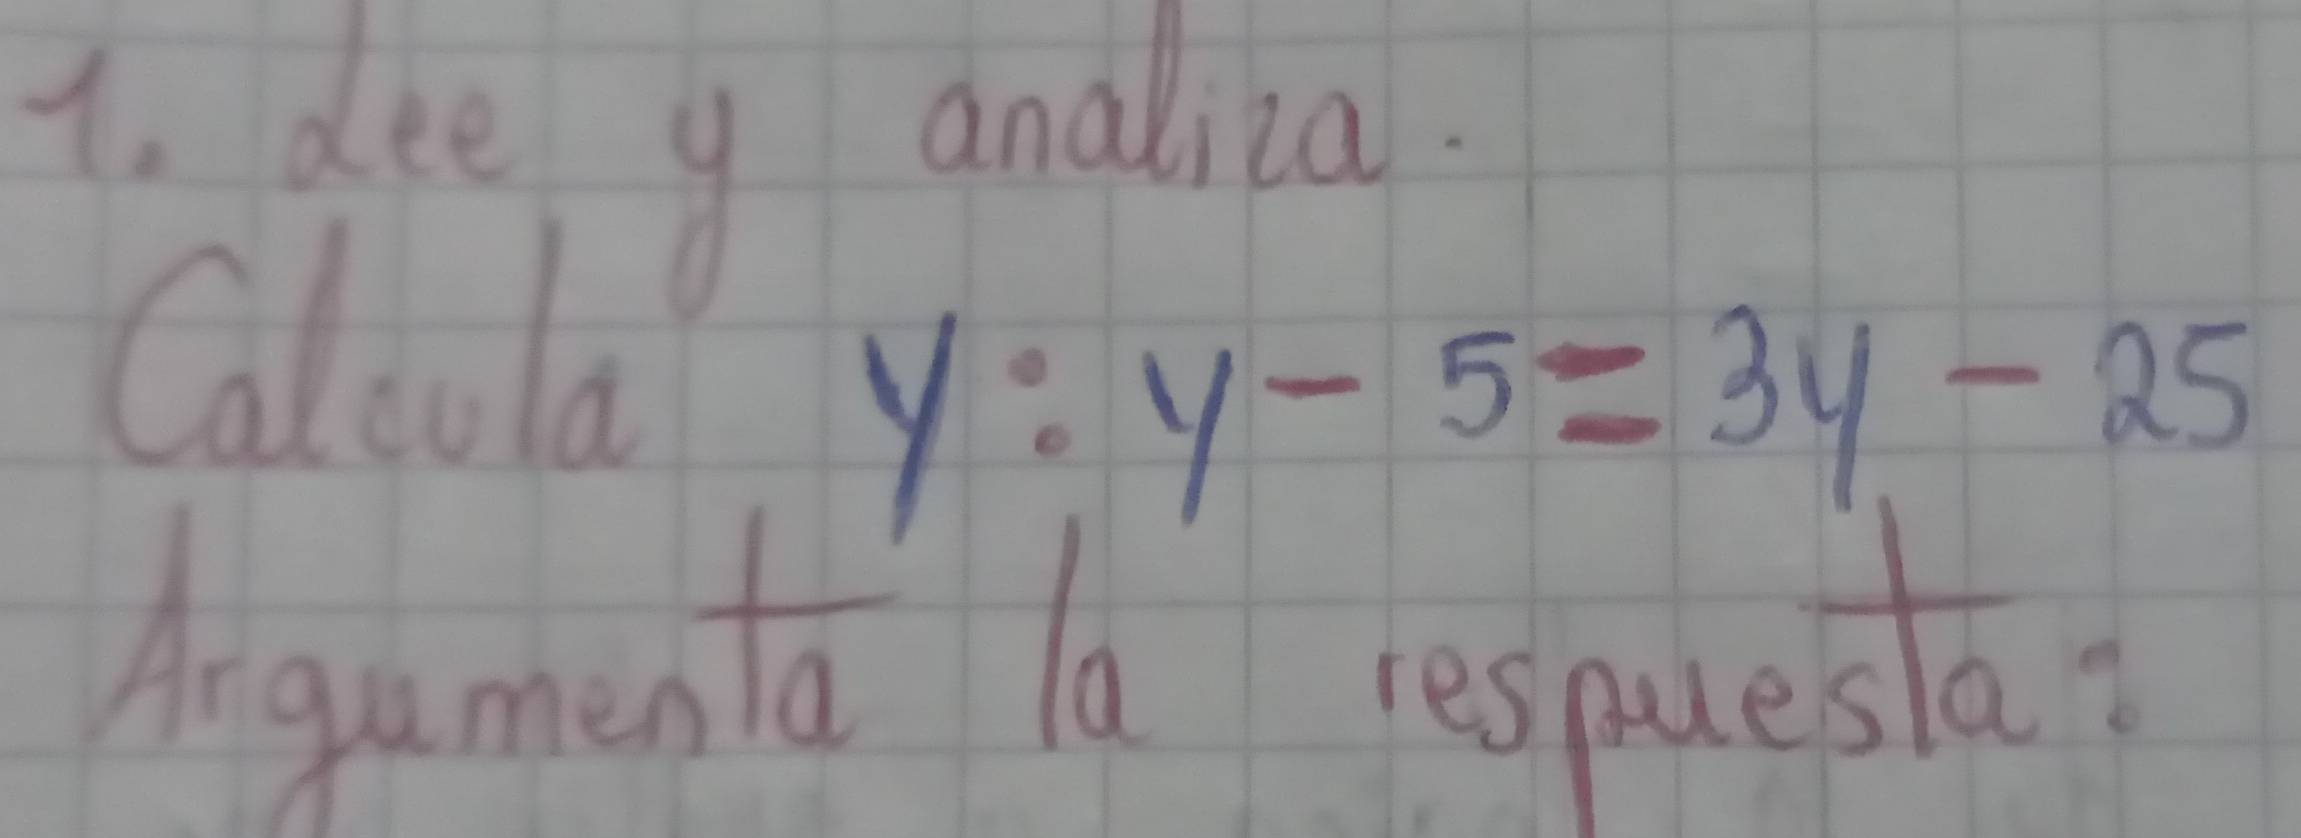 1. Lee y analiza.
Calcula y : y - 5 = 3y - 25
Argumenta la respuesta: